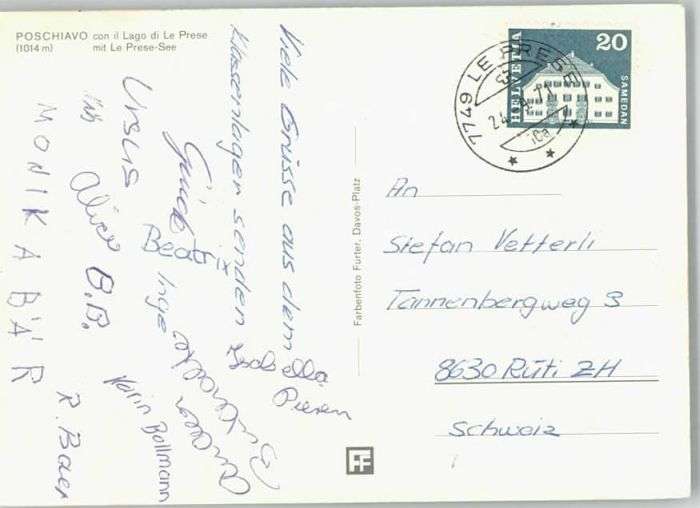 POSCHIAVO con il Lago di Le Prese
(1014 m) mit Le Prese-See
Viele Grüsse aus dem
Klassenlager senden
Isabella
Guido
Beatrix
Inge
Ursus
Alice B.B.
Karin Bollmann
MONIKA BÄR
R. Baer
Farbenfoto Furter, Davos-Platz
FF
HELVETIA
20
SAMEDAN
7749 LE PRESE
An
Stefan Vetterli
Tannenbergweg 3
8630 Rüti ZH
Schweiz